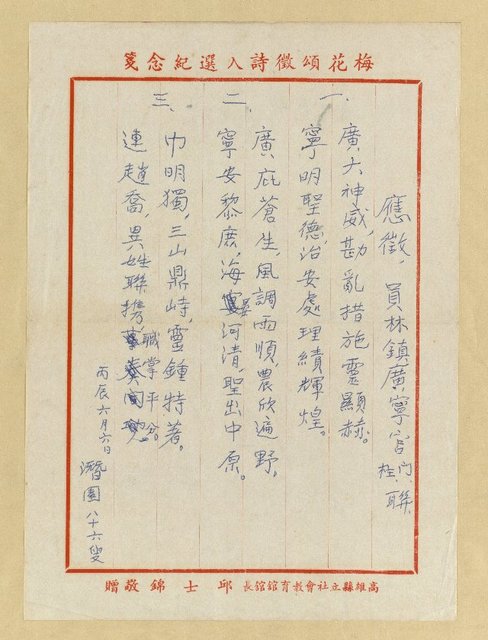 梅花頌徵詩入選紀念箋
應徵,員林鎮廣寧宮門柱聯
一、
廣大神威,勘亂措施靈顯赫。
寧明聖德,治安處理績輝煌。
二、
廣庇蒼生,風調雨順農欣遍野,
寧安黎庶,海晏河清,聖出中原。
三、
巾明獨,三山鼎峙,靈鍾特著。
連趙喬,異姓聯携,職掌平分。
丙辰六月六日
潛園八十六叟
高雄縣立社會教育館館長 邱士錦敬贈